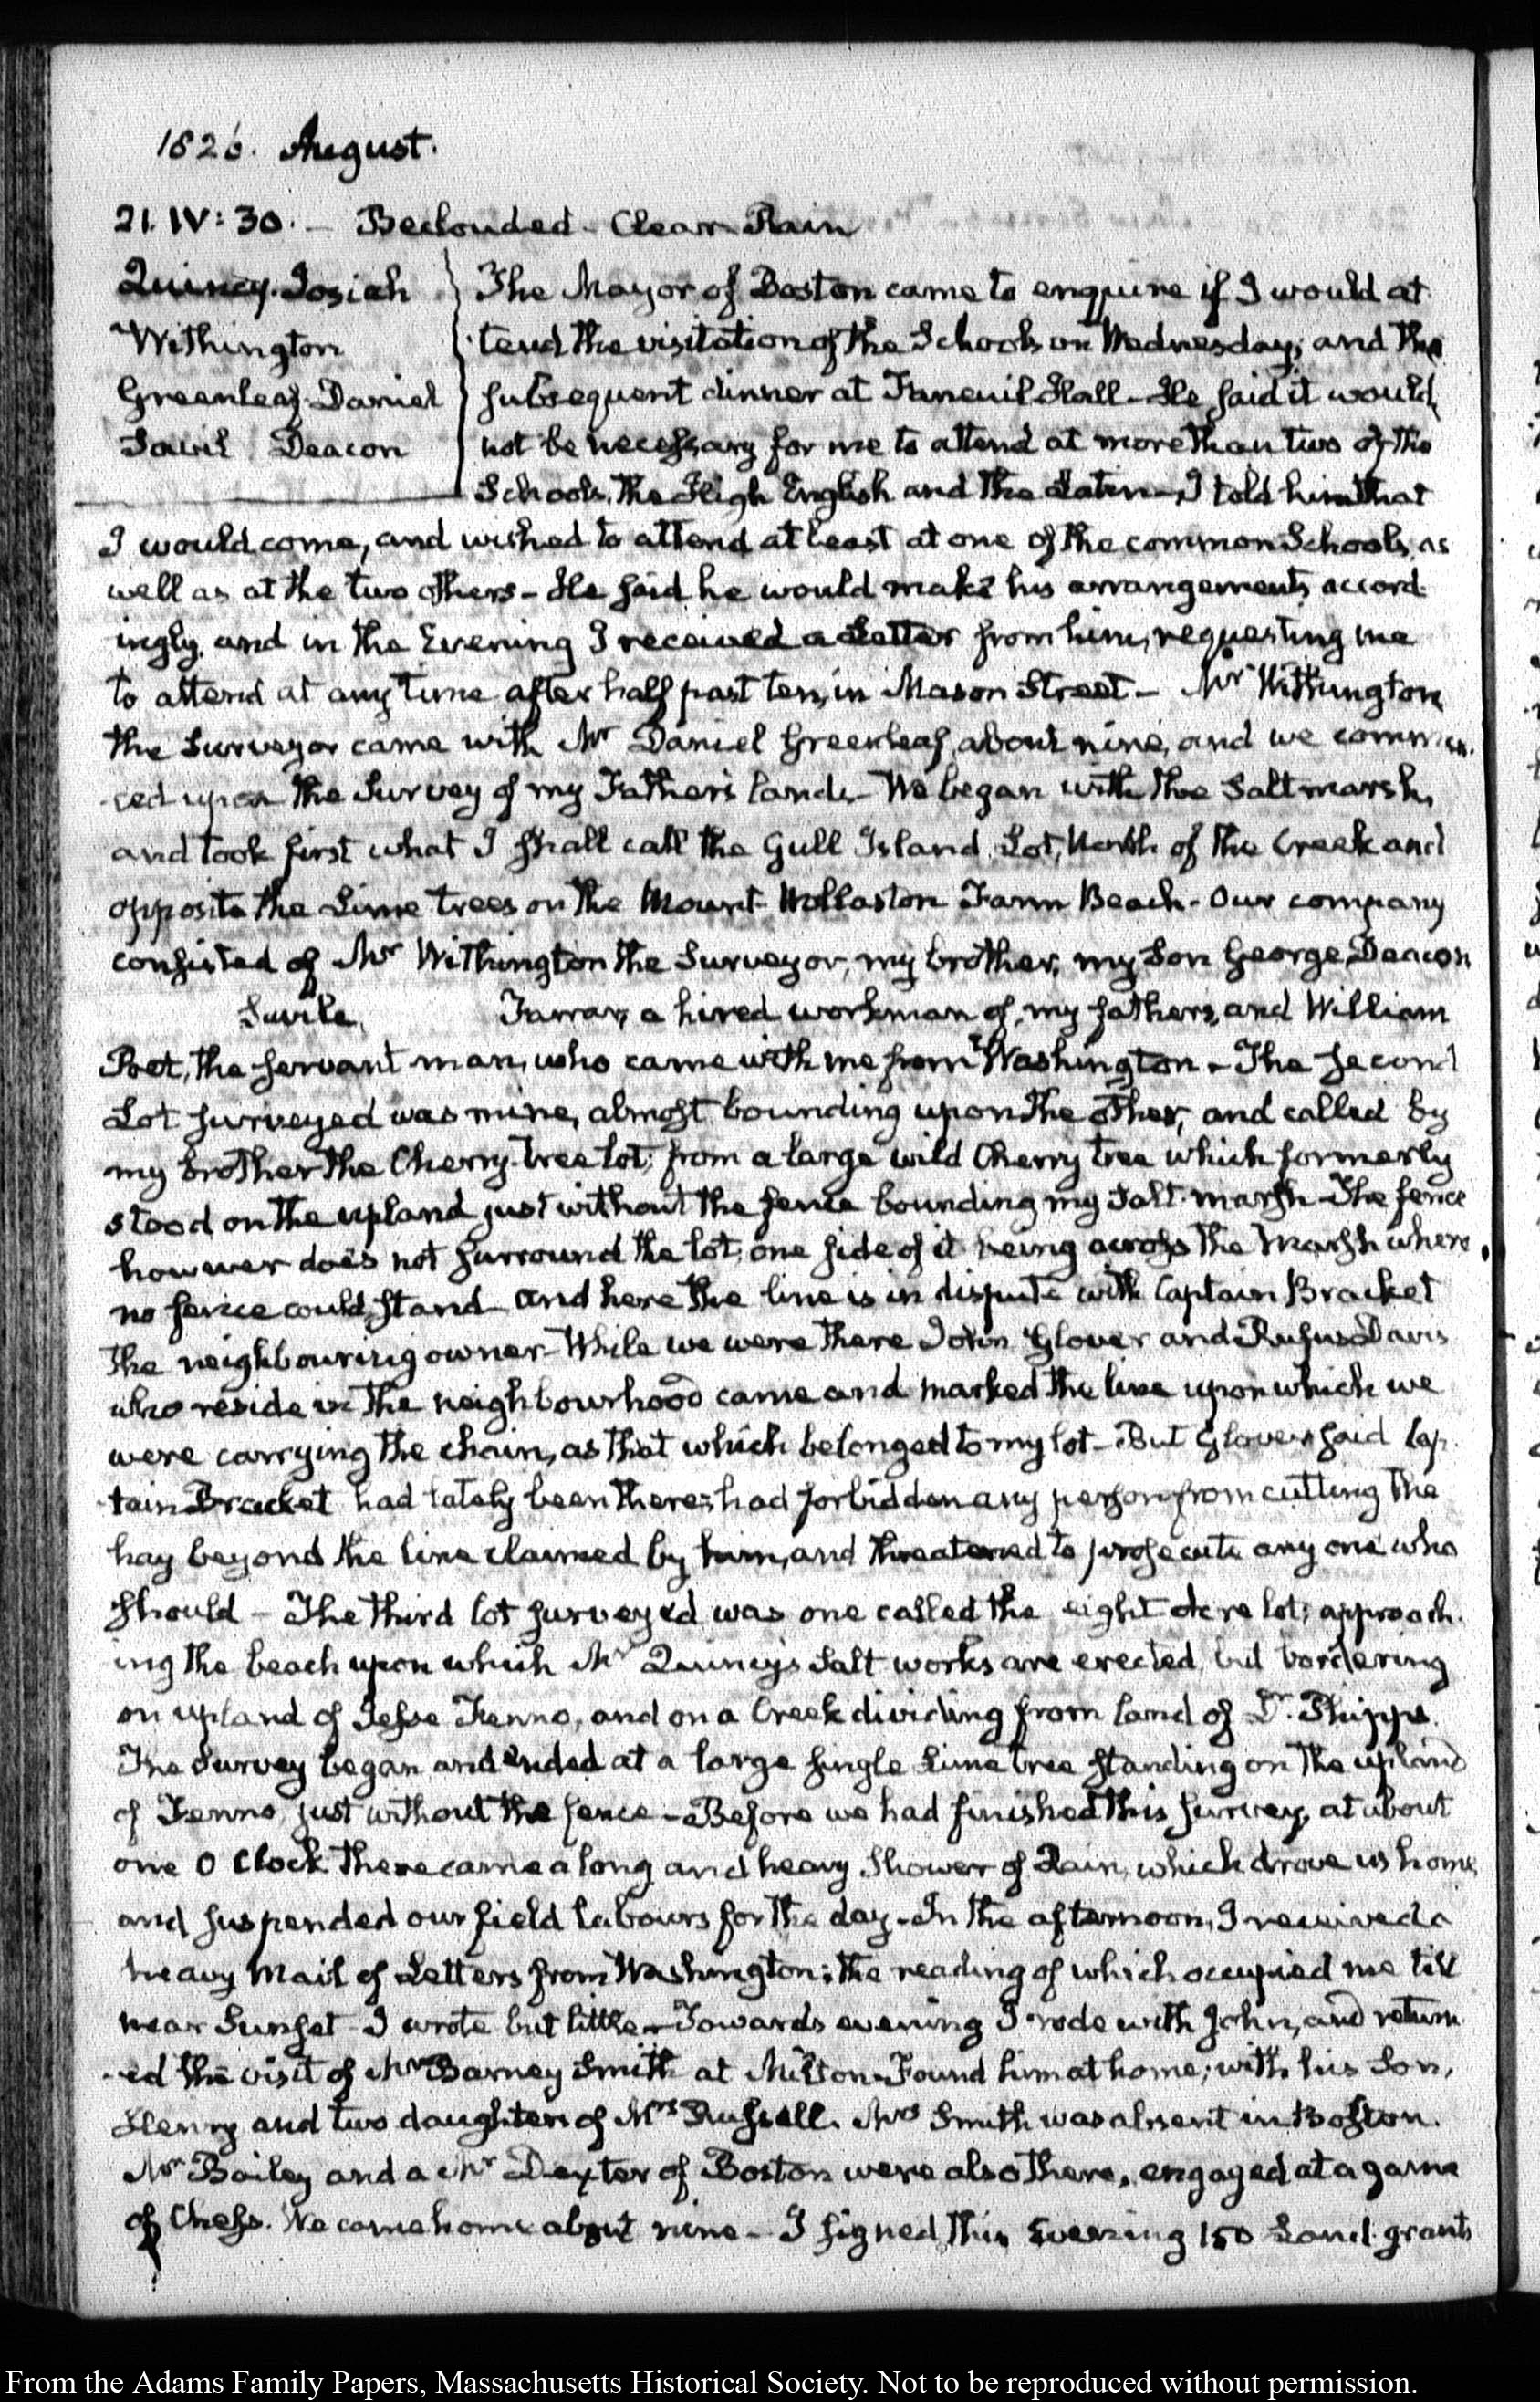 1826. August.
21. IV: 30. — Beclouded - Clear - Rain
Quincy. Josiah
Withington
Greenleaf. Daniel
Savil Deacon
The Mayor of Boston came to enquire if I would at-
tend the visitation of the Schools on Wednesday, and the
subsequent dinner at Faneuil Hall - He said it would
not be necessary for me to attend at more than two of the
Schools, the High English and the Latin - I told him that
I would come, and wished to attend at least at one of the common Schools, as
well as at the two others - He said he would make his arrangements accord-
ingly, and in the Evening I received a Letter from him, requesting me
to attend at any time after half past ten, in Mason Street - Mr Withington
the Surveyor came with Mr Daniel Greenleaf, about nine, and we commen-
ced upon the Survey of my Father's lands - We began with the Salt marsh,
and took first what I shall call the Gull Island Lot, North of the Creek and
opposite the Lime trees on the Mount-Wollaston Farm Beach - Our company
consisted of Mr Withington the Surveyor, my brother, my Son George, Deacon
Savile, Farrar, a hired workman of my fathers, and William
Post, the servant man, who came with me from Washington - The second
Lot surveyed was mine, almost bounding upon the other, and called by
my brother the Cherry-tree lot; from a large wild Cherry tree which formerly
stood on the upland just without the fence bounding my Salt-marsh - The fence
however does not surround the lot; one side of it being across the Marsh where
no fence could stand - and here the line is in dispute with Captain Bracket
the neighbouring owner - While we were there John Glover and Rufus Davis
who reside in the neighbourhood came and marked the line upon which we
were carrying the chain, as that which belonged to my lot - But Glover said Cap-
tain Bracket had lately been there; had forbidden any person from cutting the
hay beyond the line claimed by him, and threatened to prosecute any one who
should - The third lot surveyed was one called the eight Acre lot; approach-
ing the beach upon which Mr Quincy's Salt works are erected, but bordering
on upland of Jesse Fenno, and on a Creek dividing from land of Dr. Phipps.
The Survey began and ended at a large single Lime tree standing on the upland
of Fenno, just without the fence - Before we had finished this survey, at about
one O Clock there came a long and heavy Shower of Rain, which drove us home,
and suspended our field labours for the day - In the afternoon, I received a
heavy Mail of Letters from Washington; the reading of which occupied me till
near Sunset - I wrote but little - Towards evening I rode with John, and return-
ed the visit of Mr Barney Smith at Milton - Found him at home; with his Son,
Henry and two daughters of Mrs Russell. Mrs Smith was absent in Boston.
Mr Bailey and a Mr Dexter of Boston were also there, engaged at a game
of Chess. We came home about nine - I signed this Evening 150 Land grants
From the Adams Family Papers, Massachusetts Historical Society. Not to be reproduced without permission.